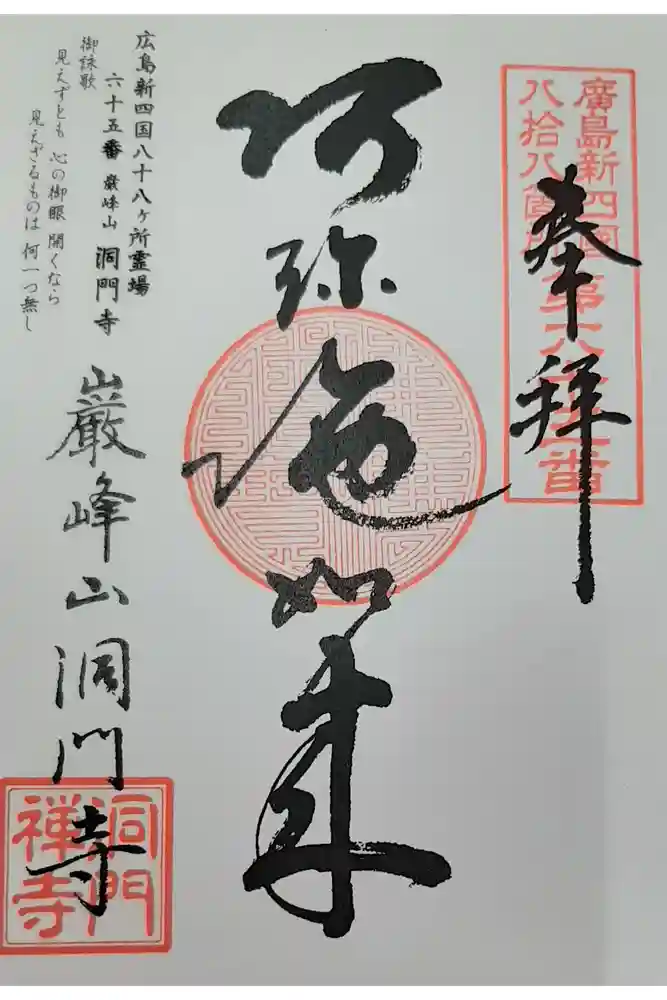 奉拝
廣島新四國
八拾八箇所第六十五番
阿弥陀如来
広島新四国八十八ヶ所霊場
六十五番 巌峰山 洞門寺
御詠歌
見えずとも 心の御眼 開くなら
見えざるものは 何一つ無し
巌峰山洞門寺
洞門
禅寺